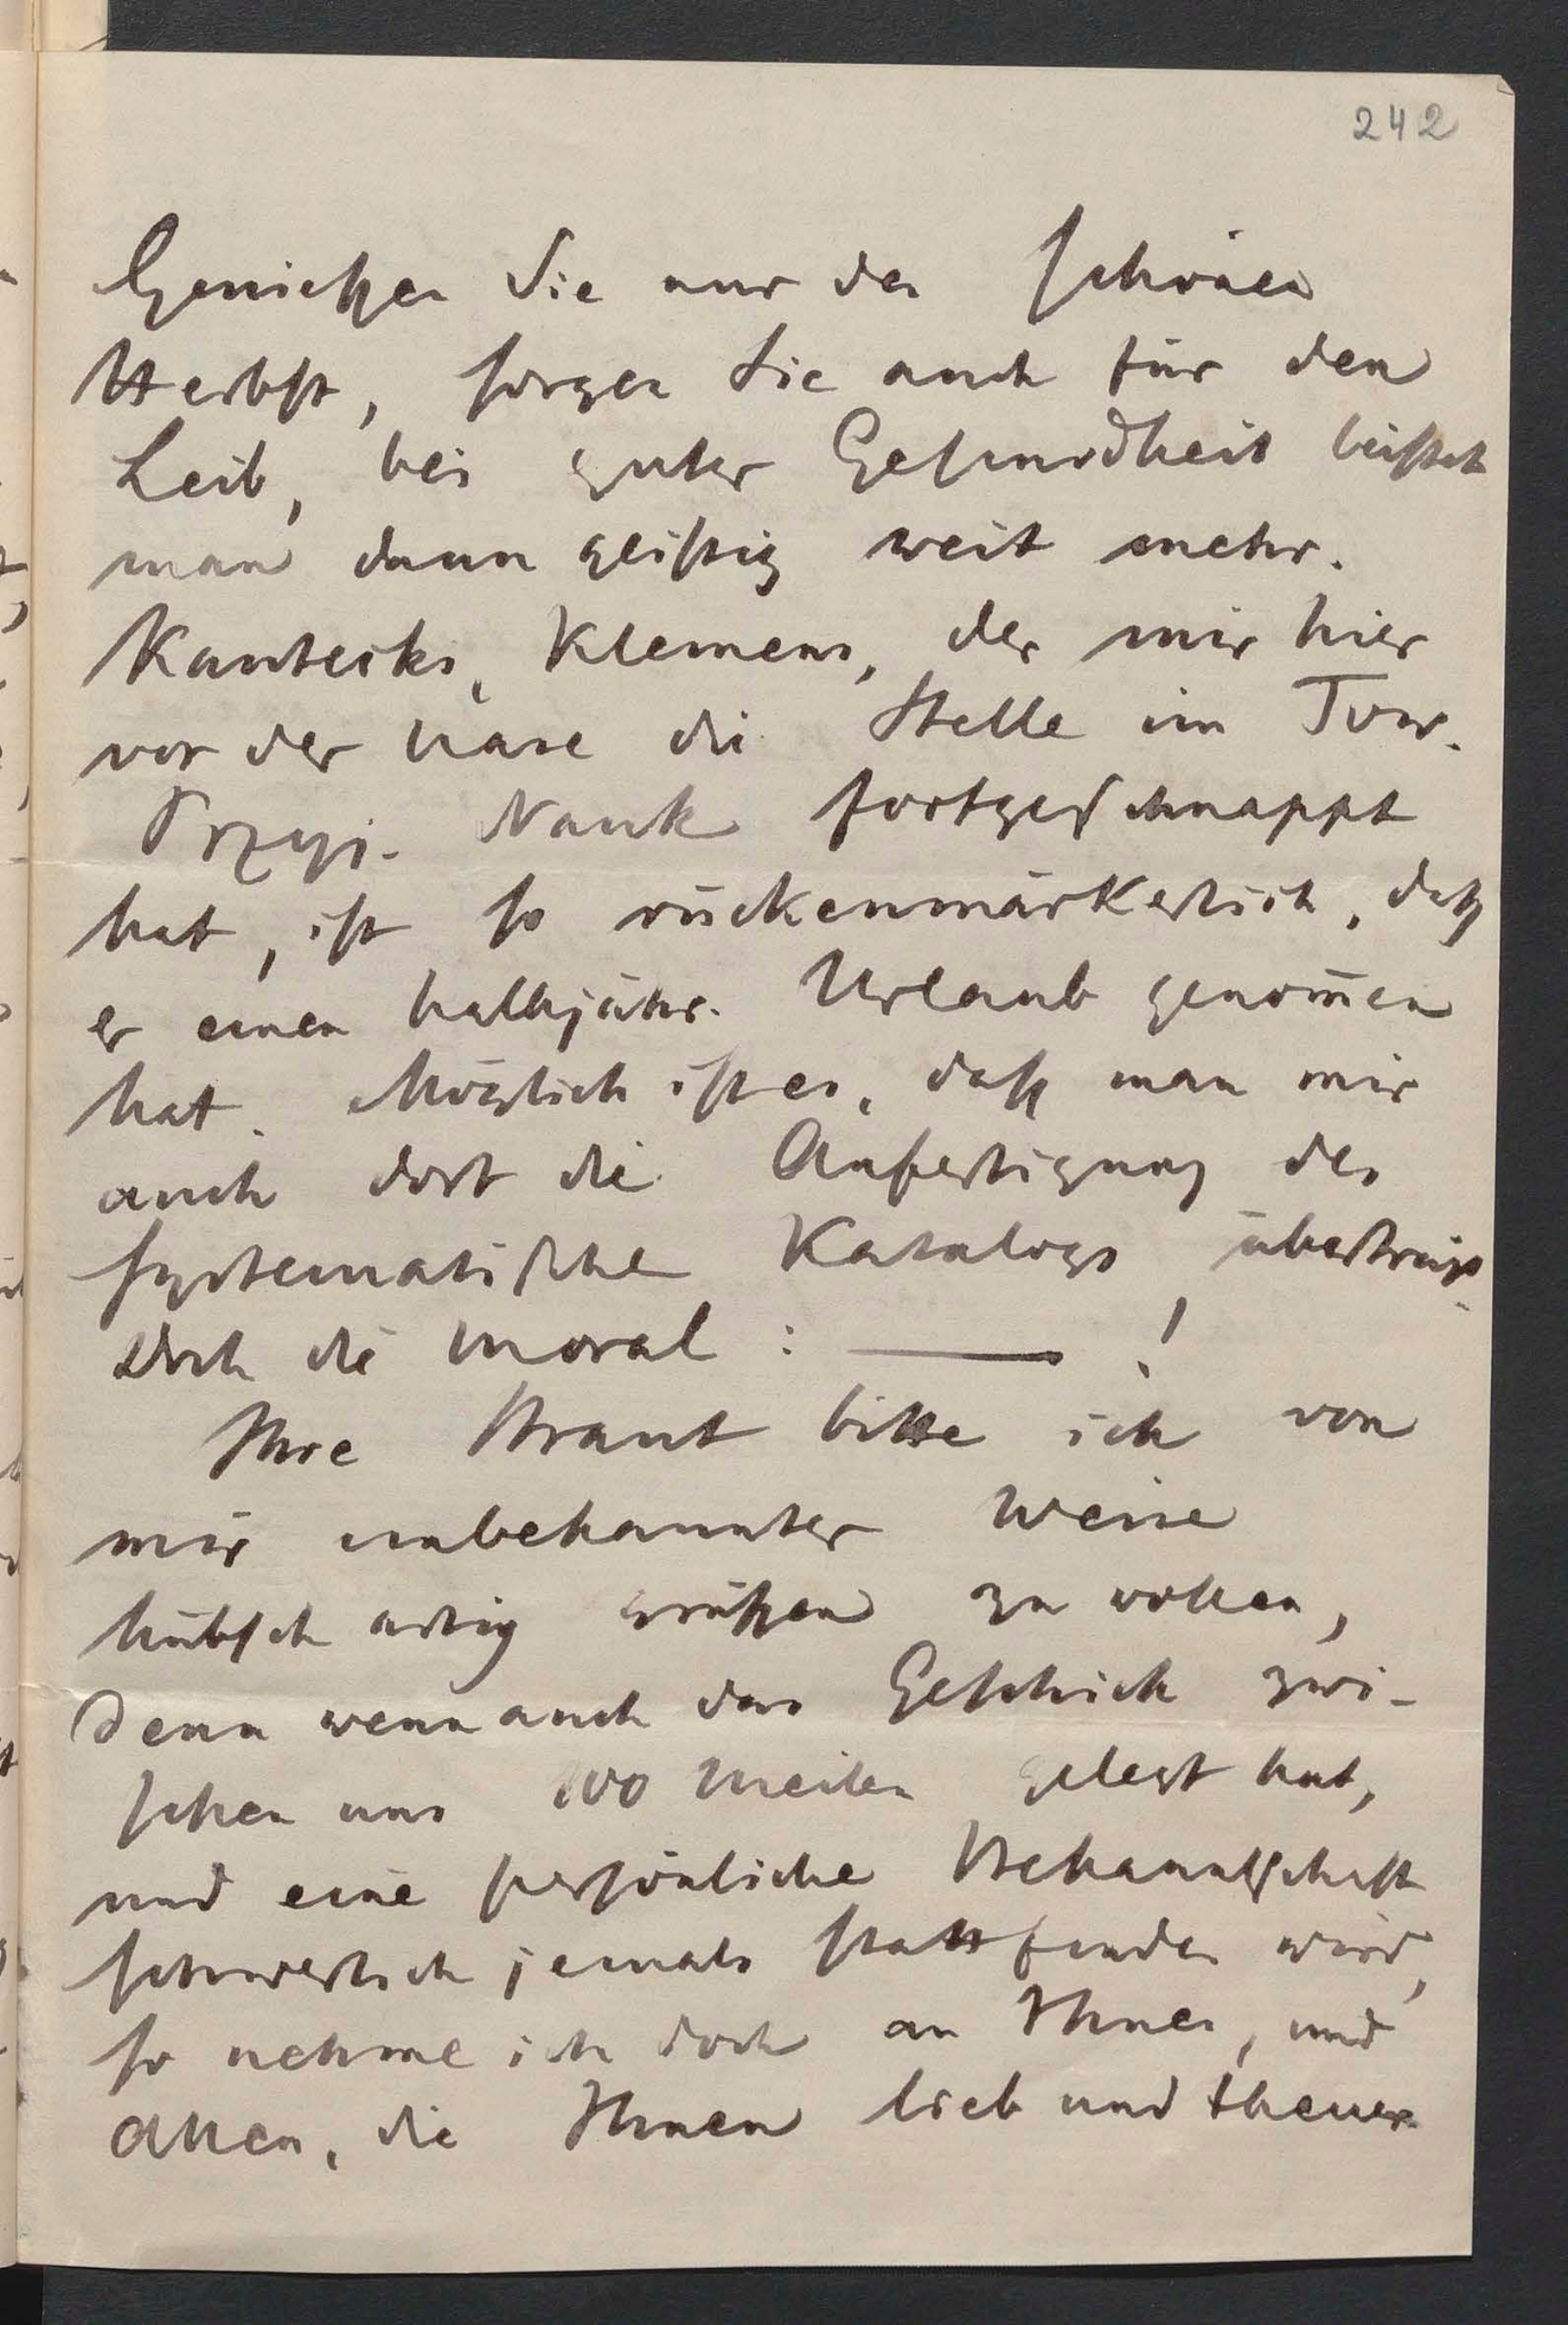 242
Genießen Sie nur den schönen
Herbst, sorgen Sie auch für den
Leib, bei guter Gesundheit leistet
man dann geistig weit mehr.
Kantecki, Klemens, der mir hier
vor der Nase die Stelle im Tow.
Przyj. Nauk fortgeschnappt
hat, ist so rückenmärkerlich, daß
er einen halbjähr. Urlaub genom̄en
hat. Möglich ist es, daß man mir
auch dort die Anfertigung des
systematischen Katalogs überträgt.
Doch die Moral : —— !
Ihre Braut bitte ich von
mir unbekannter Weise
hübsch artig grüßen zu wollen,
denn wenn auch das Geschick zwi-
schen uns 100 Meilen gelegt hat,
und eine persönliche Bekanntschaft
schwerlich jemals stattfinden wird,
so nehme ich doch an Ihnen, und
Allen, die Ihnen lieb und theuer